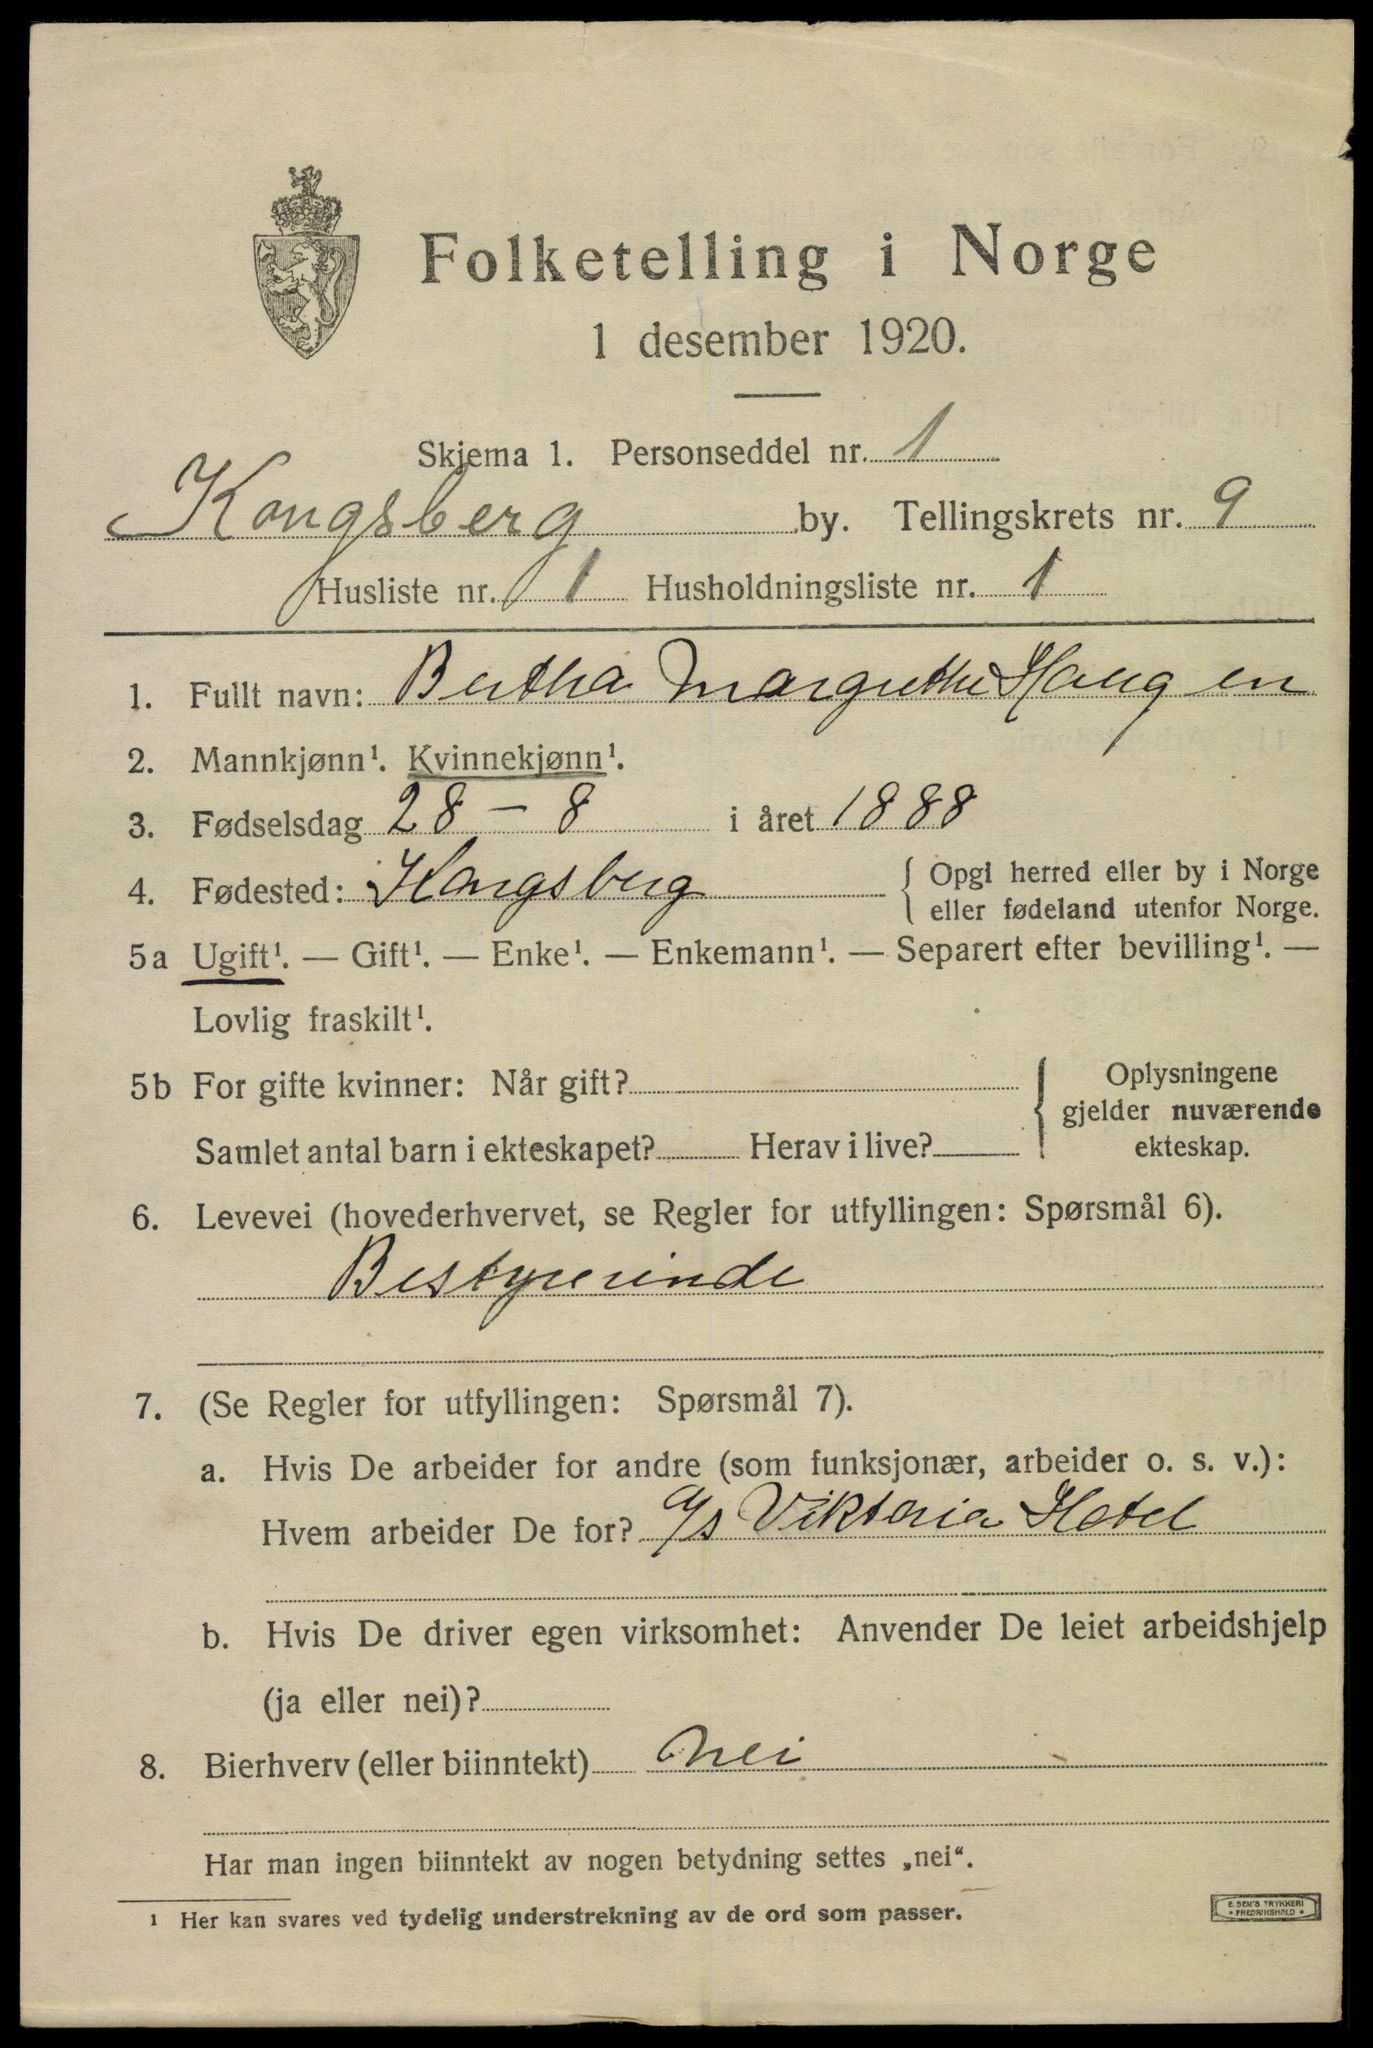 Folketelling i Norge
1 desember 1920.
Skjema 1. Personseddel nr. 1
Kongsberg by. Tellingskrets nr. 9
Husliste nr. 1 Husholdningsliste nr. 1
1. Fullt navn: Bertha Margrethe Haugen
2. Mannkjønn¹. Kvinnekjønn¹.
3. Fødselsdag 28 – 8 i året 1888
4. Fødested: Kongsberg { Opgi herred eller by i Norge
eller fødeland utenfor Norge.
5a Ugift¹. — Gift¹. — Enke¹. — Enkemann¹. — Separert efter bevilling¹. —
Lovlig fraskilt¹.
5b For gifte kvinner: Når gift? { Oplysningene
gjelder nuværende
Samlet antal barn i ekteskapet? Herav i live? ekteskap.
6. Levevei (hovederhvervet, se Regler for utfyllingen: Spørsmål 6).
Bestyrerinde
7. (Se Regler for utfyllingen: Spørsmål 7).
a. Hvis De arbeider for andre (som funksjonær, arbeider o. s. v.):
Hvem arbeider De for? A/s Viktoria Hotel
b. Hvis De driver egen virksomhet: Anvender De leiet arbeidshjelp
(ja eller nei)?
8. Bierhverv (eller biinntekt) Nei
Har man ingen biinntekt av nogen betydning settes „nei“.
¹ Her kan svares ved tydelig understrekning av de ord som passer.
E. SEM'S TRYKKERI
• FREDRIKSHALD •